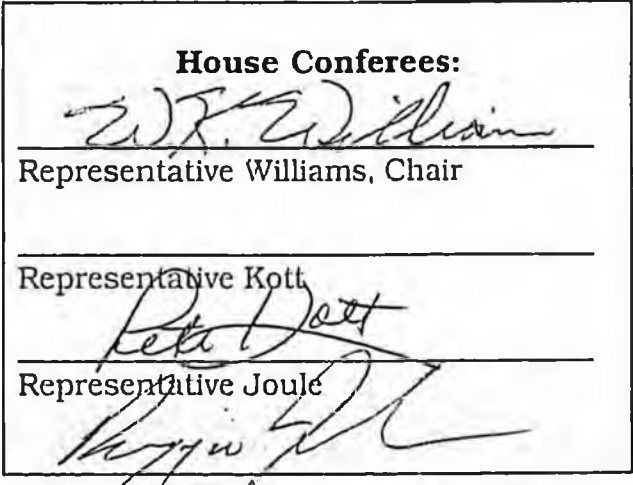 House Conferees:
W.K. Williams
Representative Williams, Chair
Representative Kott
Pete Kott
Representative Joule
Reggie Joule